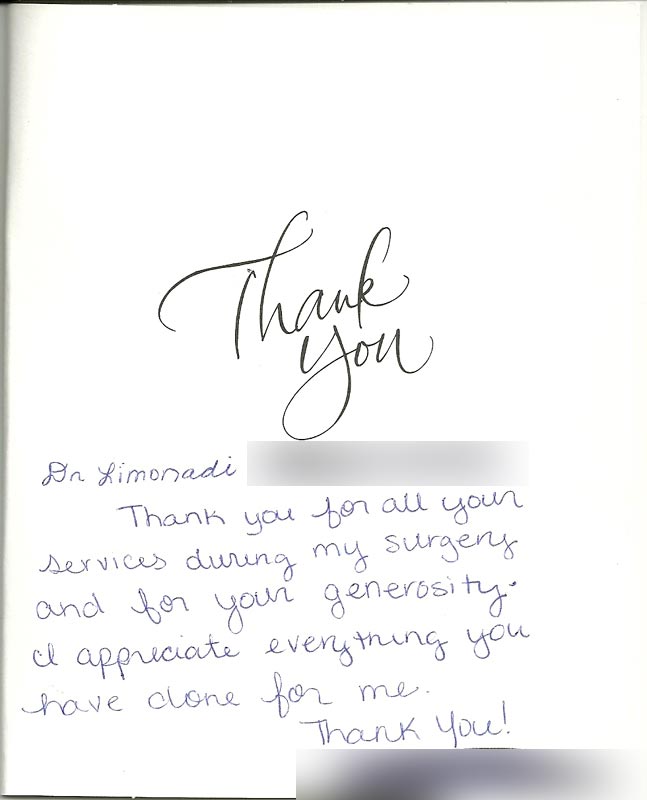 Thank
you
Dr Limonadi
Thank you for all your
services during my surgery
and for your generosity.
I appreciate everything you
have done for me.
Thank You!